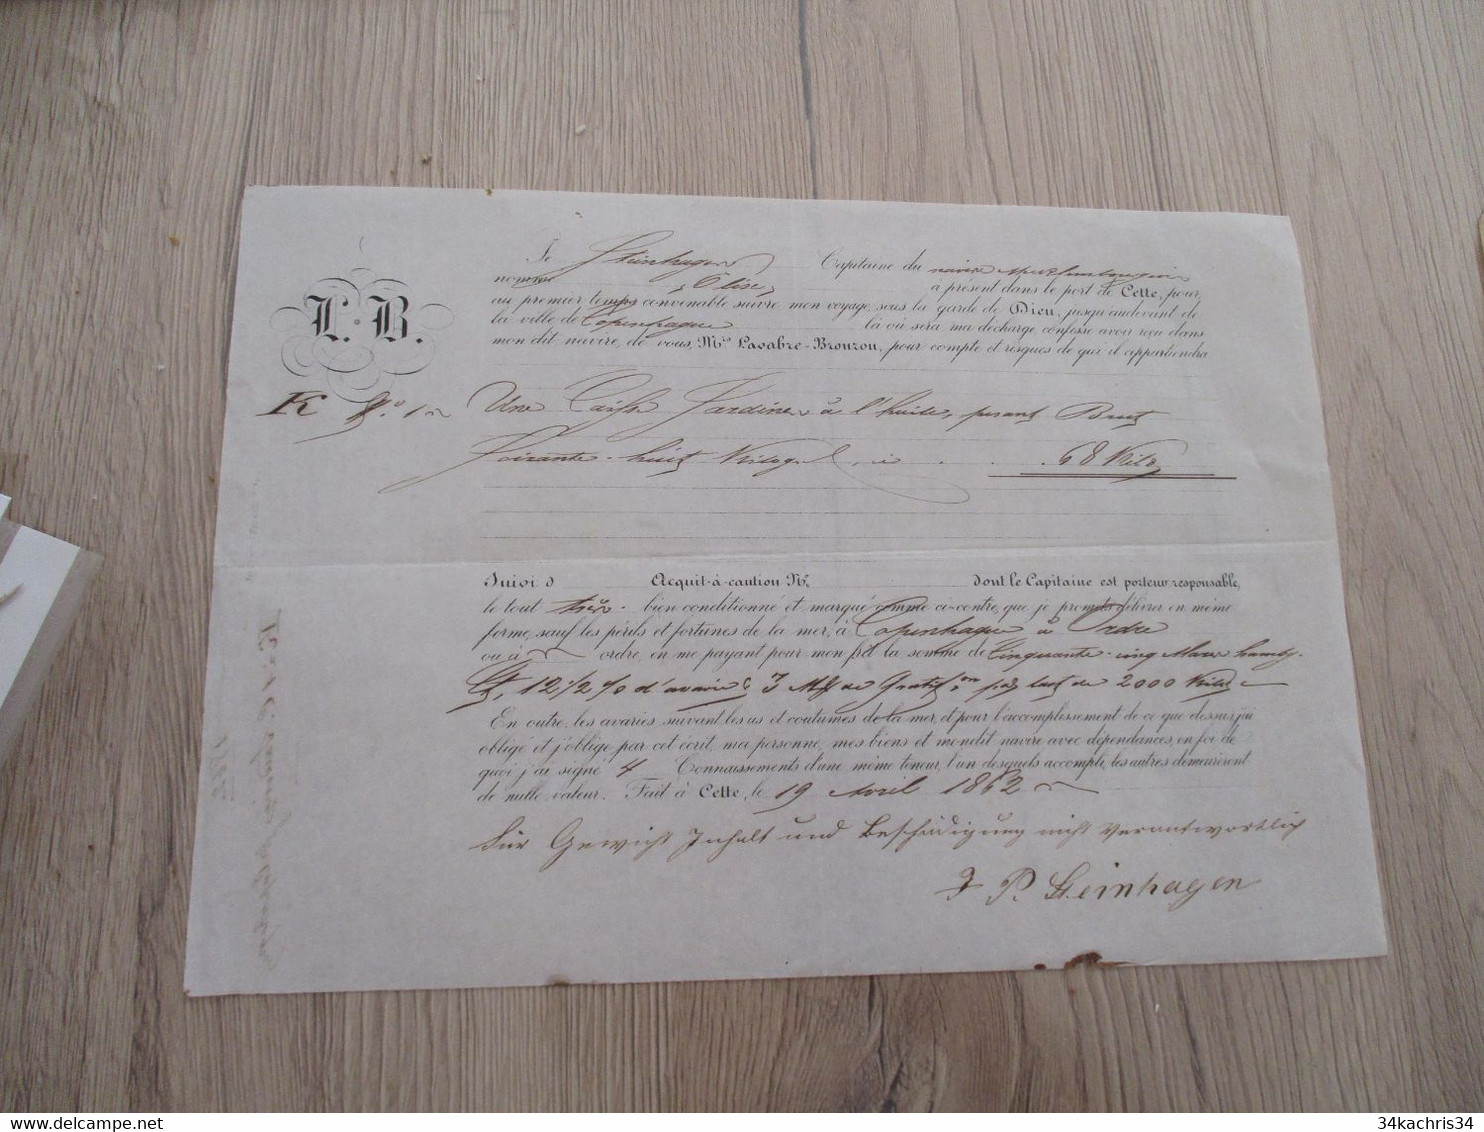 Je Steinhagen Capitaine du navire Mecklembourgeois
nommé Elise à présent dans le port de Cette, pour,
au premier temps convenable suivre mon voyage sous la garde de Dieu, jusqu'audevant de
la ville de Copenhague là où sera ma décharge confesse avoir reçu dans
mon dit navire, de vous, Mrs Lavabre-Brouzou, pour compte et risques de qui il appartiendra
L. B.
K No 1 Une Caisse Sardines à l'huile, pesant Brut
Soixante-huit Kilog. 68 Kilos
Suivi d Acquit-à-caution No dont le Capitaine est porteur responsable,
le tout bien conditionné et marqué comme ci-contre, que je promets délivrer en même
forme, sauf les périls et fortunes de la mer, à Copenhague à Ordre
ou à ordre, en me payant pour mon fret la somme de Cinquante-cinq Marcs hambg.
12 1/2 % d'avarie & 3 de Gratifon last de 2000 Kilos
En outre, les avaries suivant les us et coutumes de la mer, et pour l'accomplissement de ce que dessus j'ai
obligé et j'oblige par cet écrit, ma personne, mes biens et mondit navire avec dépendances, en foi de
quoi j'ai signé 4 Connaissements d'une même teneur, l'un desquels accompli, les autres demeureront
de nulle valeur. Fait à Cette, le 19 Avril 1862
Für Gewicht Inhalt und Beschädigung nicht verantwortlich
J P. Steinhagen
34kachris34